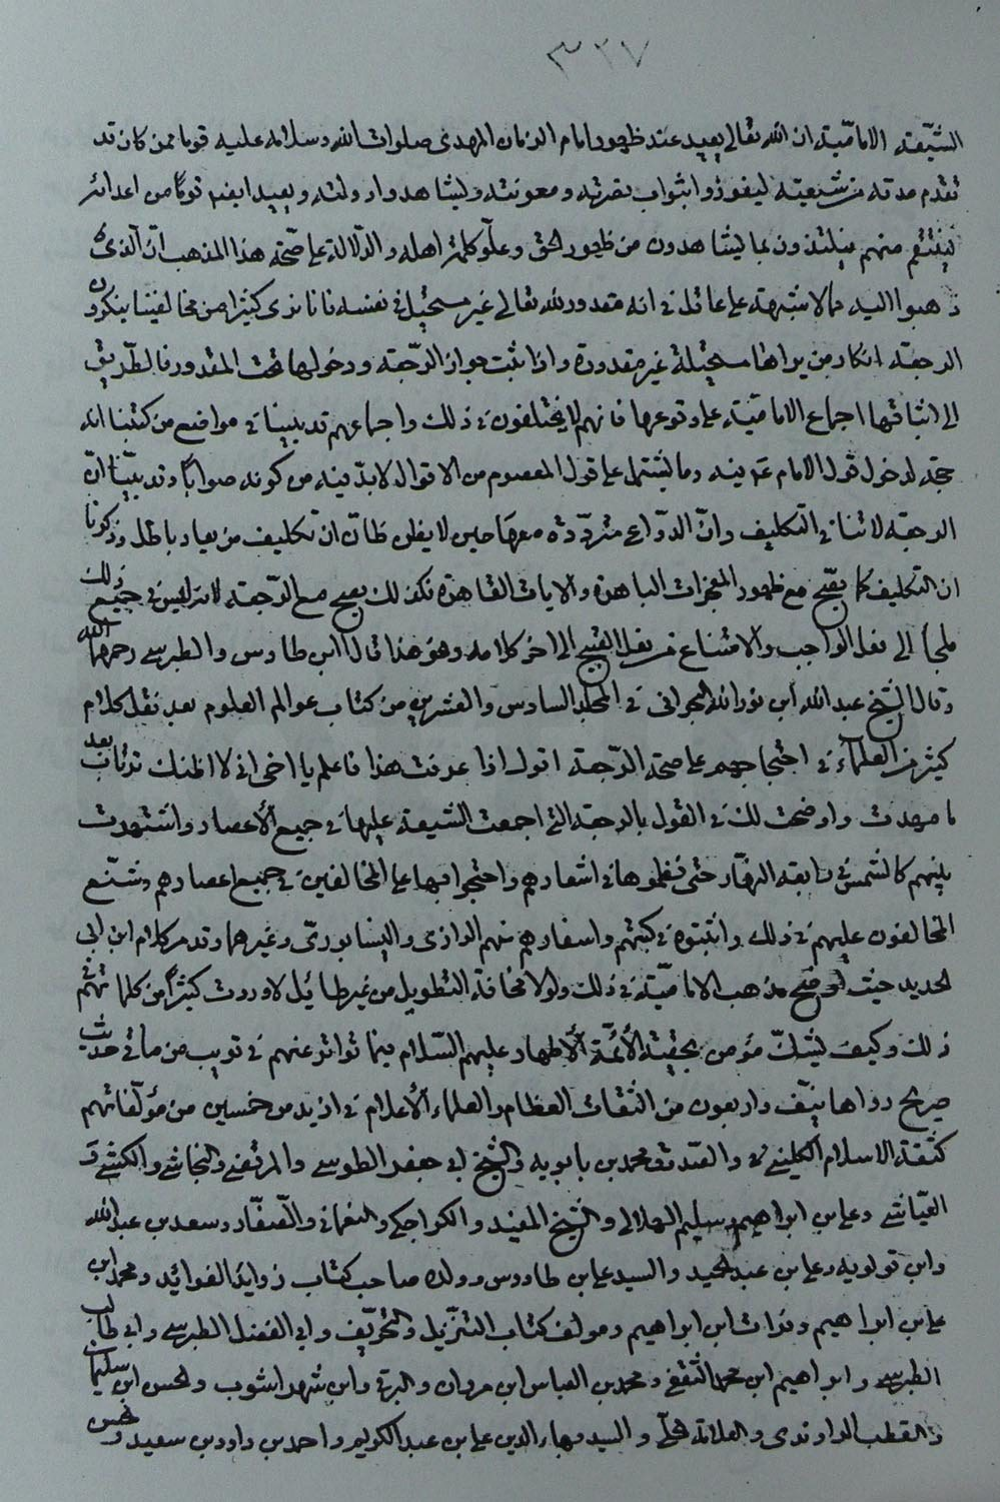 ٣٢٧
الشيعة الامامية ان الله تعالى يعيد عند ظهور امام الزمان المهدى صلوات الله وسلامه عليه قوما ممن كان قد
تقدم مدته من شيعته ليفوزوا بثواب نصرته ومعونته وليشاهدوا دولته ويعيد ايضا قوما من اعدائه
لينتقم منهم فيلتذون بما يشاهدون من ظهور الحق وعلو كلمة اهله والدلالة على صحة هذا المذهب ان الذى
ذهبوا اليه مما لا شبهة على عاقل فى انه مقدور لله تعالى غير مستحيل فى نفسه فانا نرى كثيرا من مخالفينا ينكرون
الرجعة انكار من يراها مستحيلة غير مقدورة واذا ثبت جواز الرجعة ودخولها تحت المقدور فالطريق
الى اثباتها اجماع الامامية على وقوعها فانهم لا يختلفون فى ذلك واجماعهم قد بينا فى مواضع من كتبنا انه
حجة لدخول قول الامام ع فيه وما يشتمل على قول المعصوم من الاقوال لا بد فيه من كونه صوابا وقد بينا ان
الرجعة لا تنافى التكليف وان الدواعى مترددة معها حين لا يظن ظان ان تكليف من يعاد باطل وذكرنا
ان التكليف كما يصح مع ظهور المعجزات الباهرة والايات القاهرة فكذلك يصح مع الرجعة لانه ليس فى جميع ذلك
ملجأ الى فعل الواجب والامتناع من فعل القبيح الى اخر كلامه وهو هذا قال ابن طاوس والطبرسى رحمهما الله
وقال الشيخ عبدالله ابن نورالله البحرانى فى المجلد السادس والعشرين من كتاب عوالم العلوم بعد نقل كلام
كثير من العلماء فى احتجاجهم على صحة الرجعة اقول اذا عرفت هذا فاعلم يا اخى انى لا اظنك ترتاب بعد
ما مهدت واوضحت لك فى القول بالرجعة التى اجمعت الشيعة عليها فى جميع الأعصار واشتهرت
بينهم كالشمس فى رابعة النهار حتى نظموها فى اشعارهم واحتجوا بها على المخالفين فى جميع اعصارهم وشنع
المخالفون عليهم فى ذلك واثبتوه فى كتبهم واسفارهم منهم الرازى والنيسابورى وغيرهما وقد مر كلام ابن ابى
الحديد حيث اوضح مذهب الامامية فى ذلك ولولا مخافة التطويل من غير طائل لاوردت كثيرا من كلماتهم فى
ذلك وكيف يشك مؤمن بحقية الأئمة الأطهار عليهم السلام فيما تواتر عنهم فى قريب من مأتى حديث
صريح رواها نيف واربعون من الثقات العظام والعلماء الأعلام فى ازيد من خمسين من مؤلفاتهم
كثقة الاسلام الكلينى والصدوق محمد بن بابويه والشيخ ابى جعفر الطوسى والمرتضى والنجاشى والكشى و
العياشى وعلى بن ابراهيم وسليم الهلالى والشيخ المفيد والكراجكى والنعمانى والصفار وسعد بن عبدالله
وابن قولويه وعلى بن عبدالحميد والسيد على بن طاووس وولده صاحب كتاب زوايد الفوائد ومحمد ابن
على بن ابراهيم وفرات ابن ابراهيم ومولف كتاب التنزيل والتحريف وابى الفضل الطبرسى وابى طالب
الطبرسى وابراهيم ابن محمد الثقفى ومحمد بن العباس ابن مروان والبرقى وابن شهراشوب والحسن ابن سليمان
والقطب الراوندى والعلامة الحلى والسيد بهاء الدين على بن عبدالكريم واحمد بن داود بن سعيد والحسن